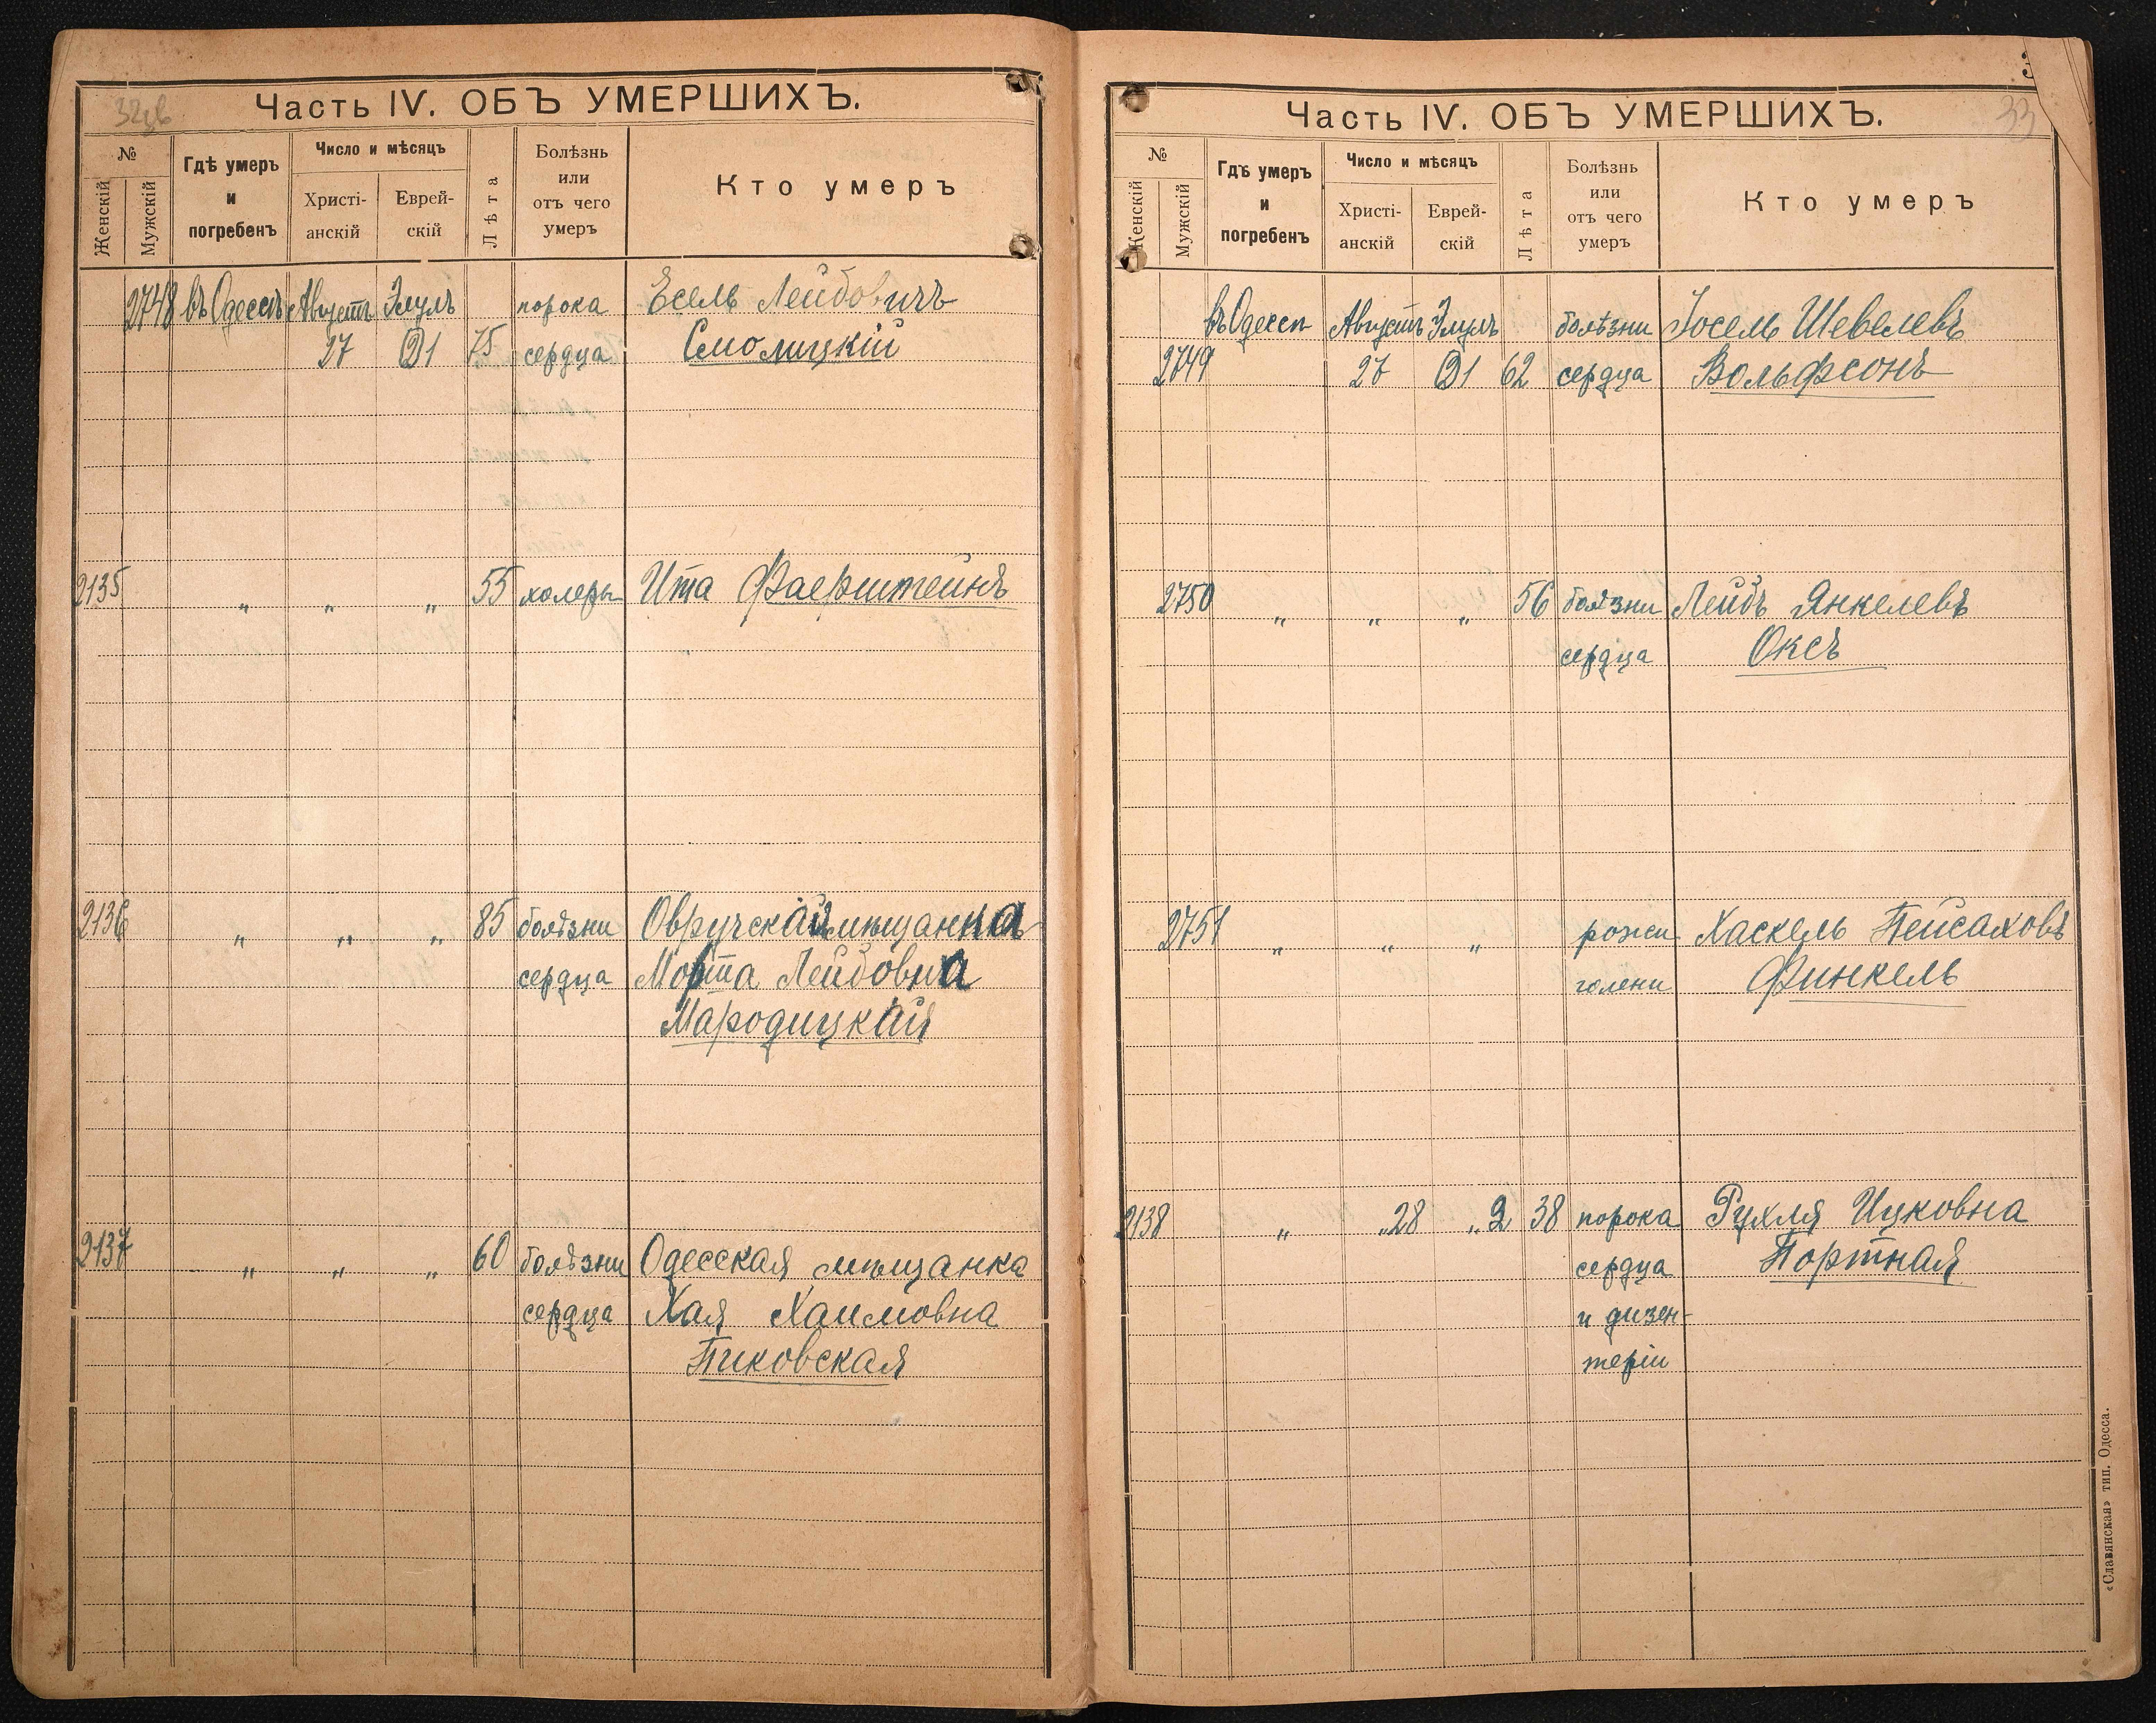 32цв
Часть IV. ОБЪ УМЕРШИХЪ.
№
Женскій
Мужскій
Гдѣ умеръ
и
погребенъ
Число и мѣсяцъ
Христі-
анскій
Еврей-
скій
Лѣта
Болѣзнь
или
отъ чего
умеръ
Кто умеръ
2748 въ Одессѣ Августъ Элулъ порока Есель Лейбовичъ
27 1 75 сердца Смолицкій
2135 " " " 55 холеры Ита Фаерштейнъ
2136 " " " 85 болѣзни Овручская мѣщанка
сердца Морта Лейбовна
Народицкая
2137 " " " 60 болѣзни Одесская мѣщанка
сердца Хая Хаимовна
Пиковская
33
Часть IV. ОБЪ УМЕРШИХЪ.
№
Женскій
Мужскій
Гдѣ умеръ
и
погребенъ
Число и мѣсяцъ
Христі-
анскій
Еврей-
скій
Лѣта
Болѣзнь
или
отъ чего
умеръ
Кто умеръ
въ Одессѣ Августъ Элулъ болѣзни Іосель Шевелевъ
2749 27 1 62 сердца Вольфсонъ
2750 " " " 56 болѣзни Лейбъ Янкелевъ
сердца Оксъ
2751 " " " рожи Хаскель Пейсаховъ
голени Финкель
2138 " " 28 " 2 38 порока Рухля Ицковна
сердца Портная
и дизен-
теріи
«Славянская» тип. Одесса.